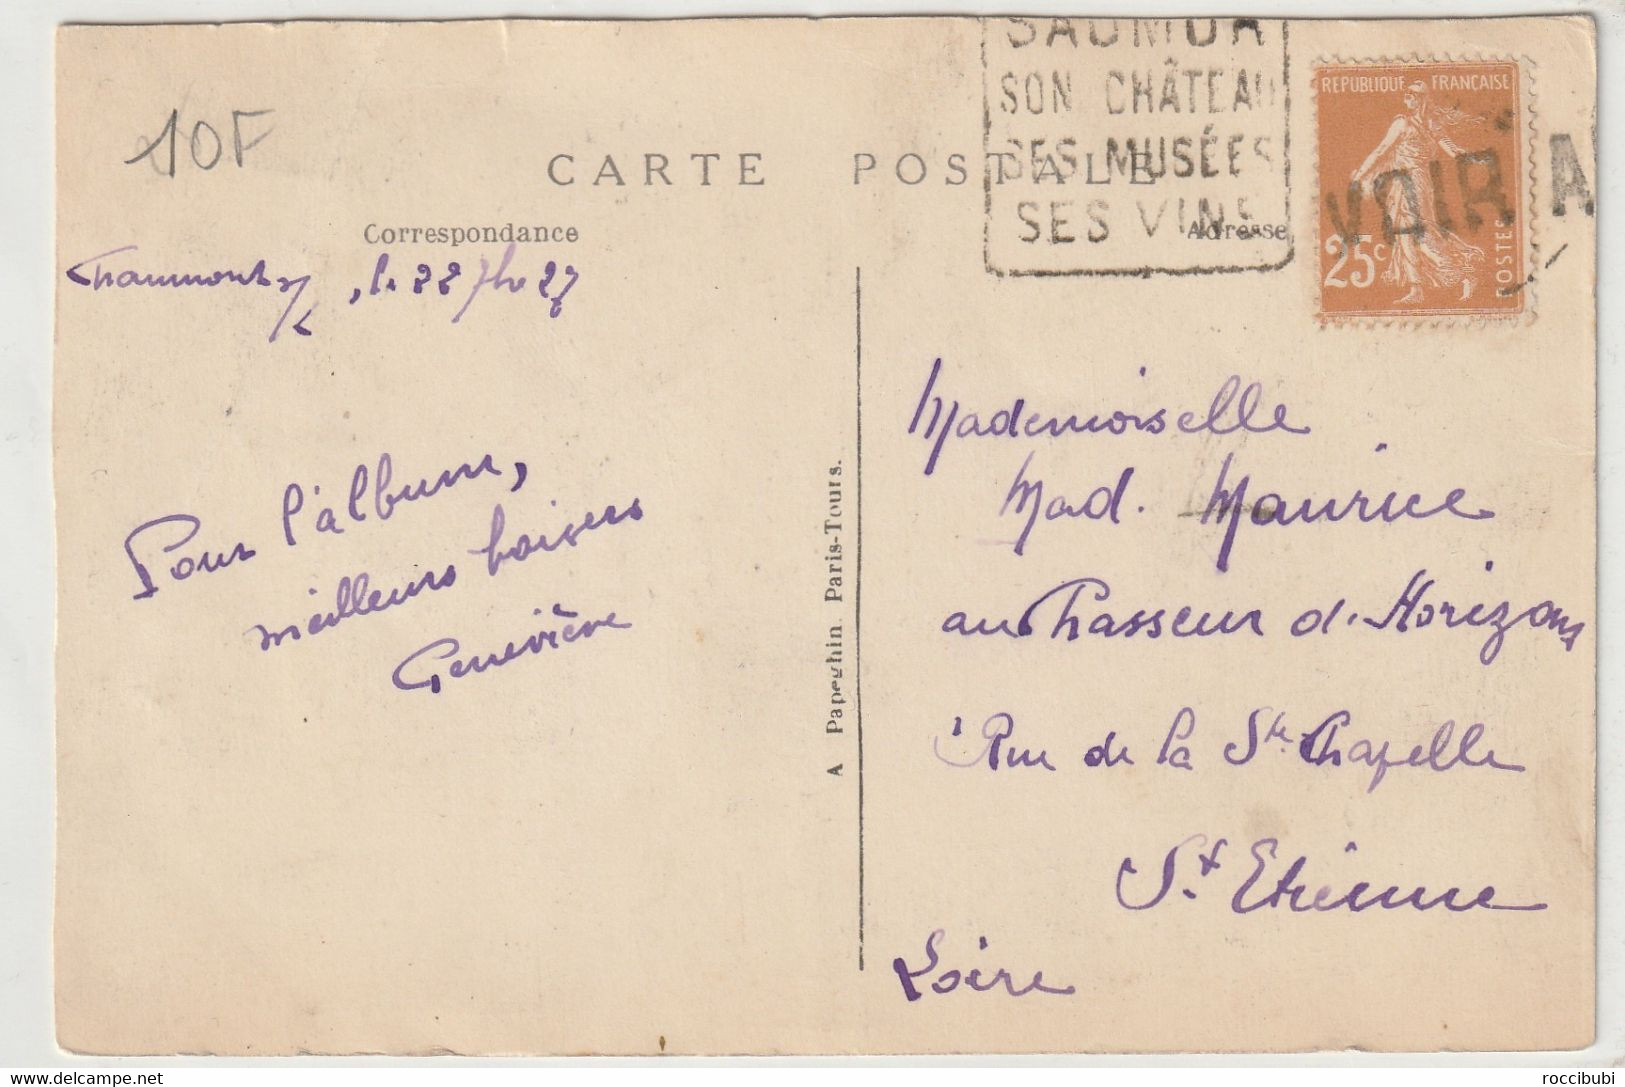 10F
SAUMUR
SON CHÂTEAU
SES MUSÉES
SES VINS
VOIR A
REPUBLIQUE FRANÇAISE
25c
POSTES
CARTE POSTALE
Correspondance
Adresse
Chaumont s/L, le 22 27
Pour l'album,
meilleurs baisers
Geneviève
A Papeghin Paris-Tours.
Mademoiselle
Mad. Maurice
au Chasseur d. Horizons
1 Rue de la Ste Chapelle
St Etienne
Loire
roccibubi